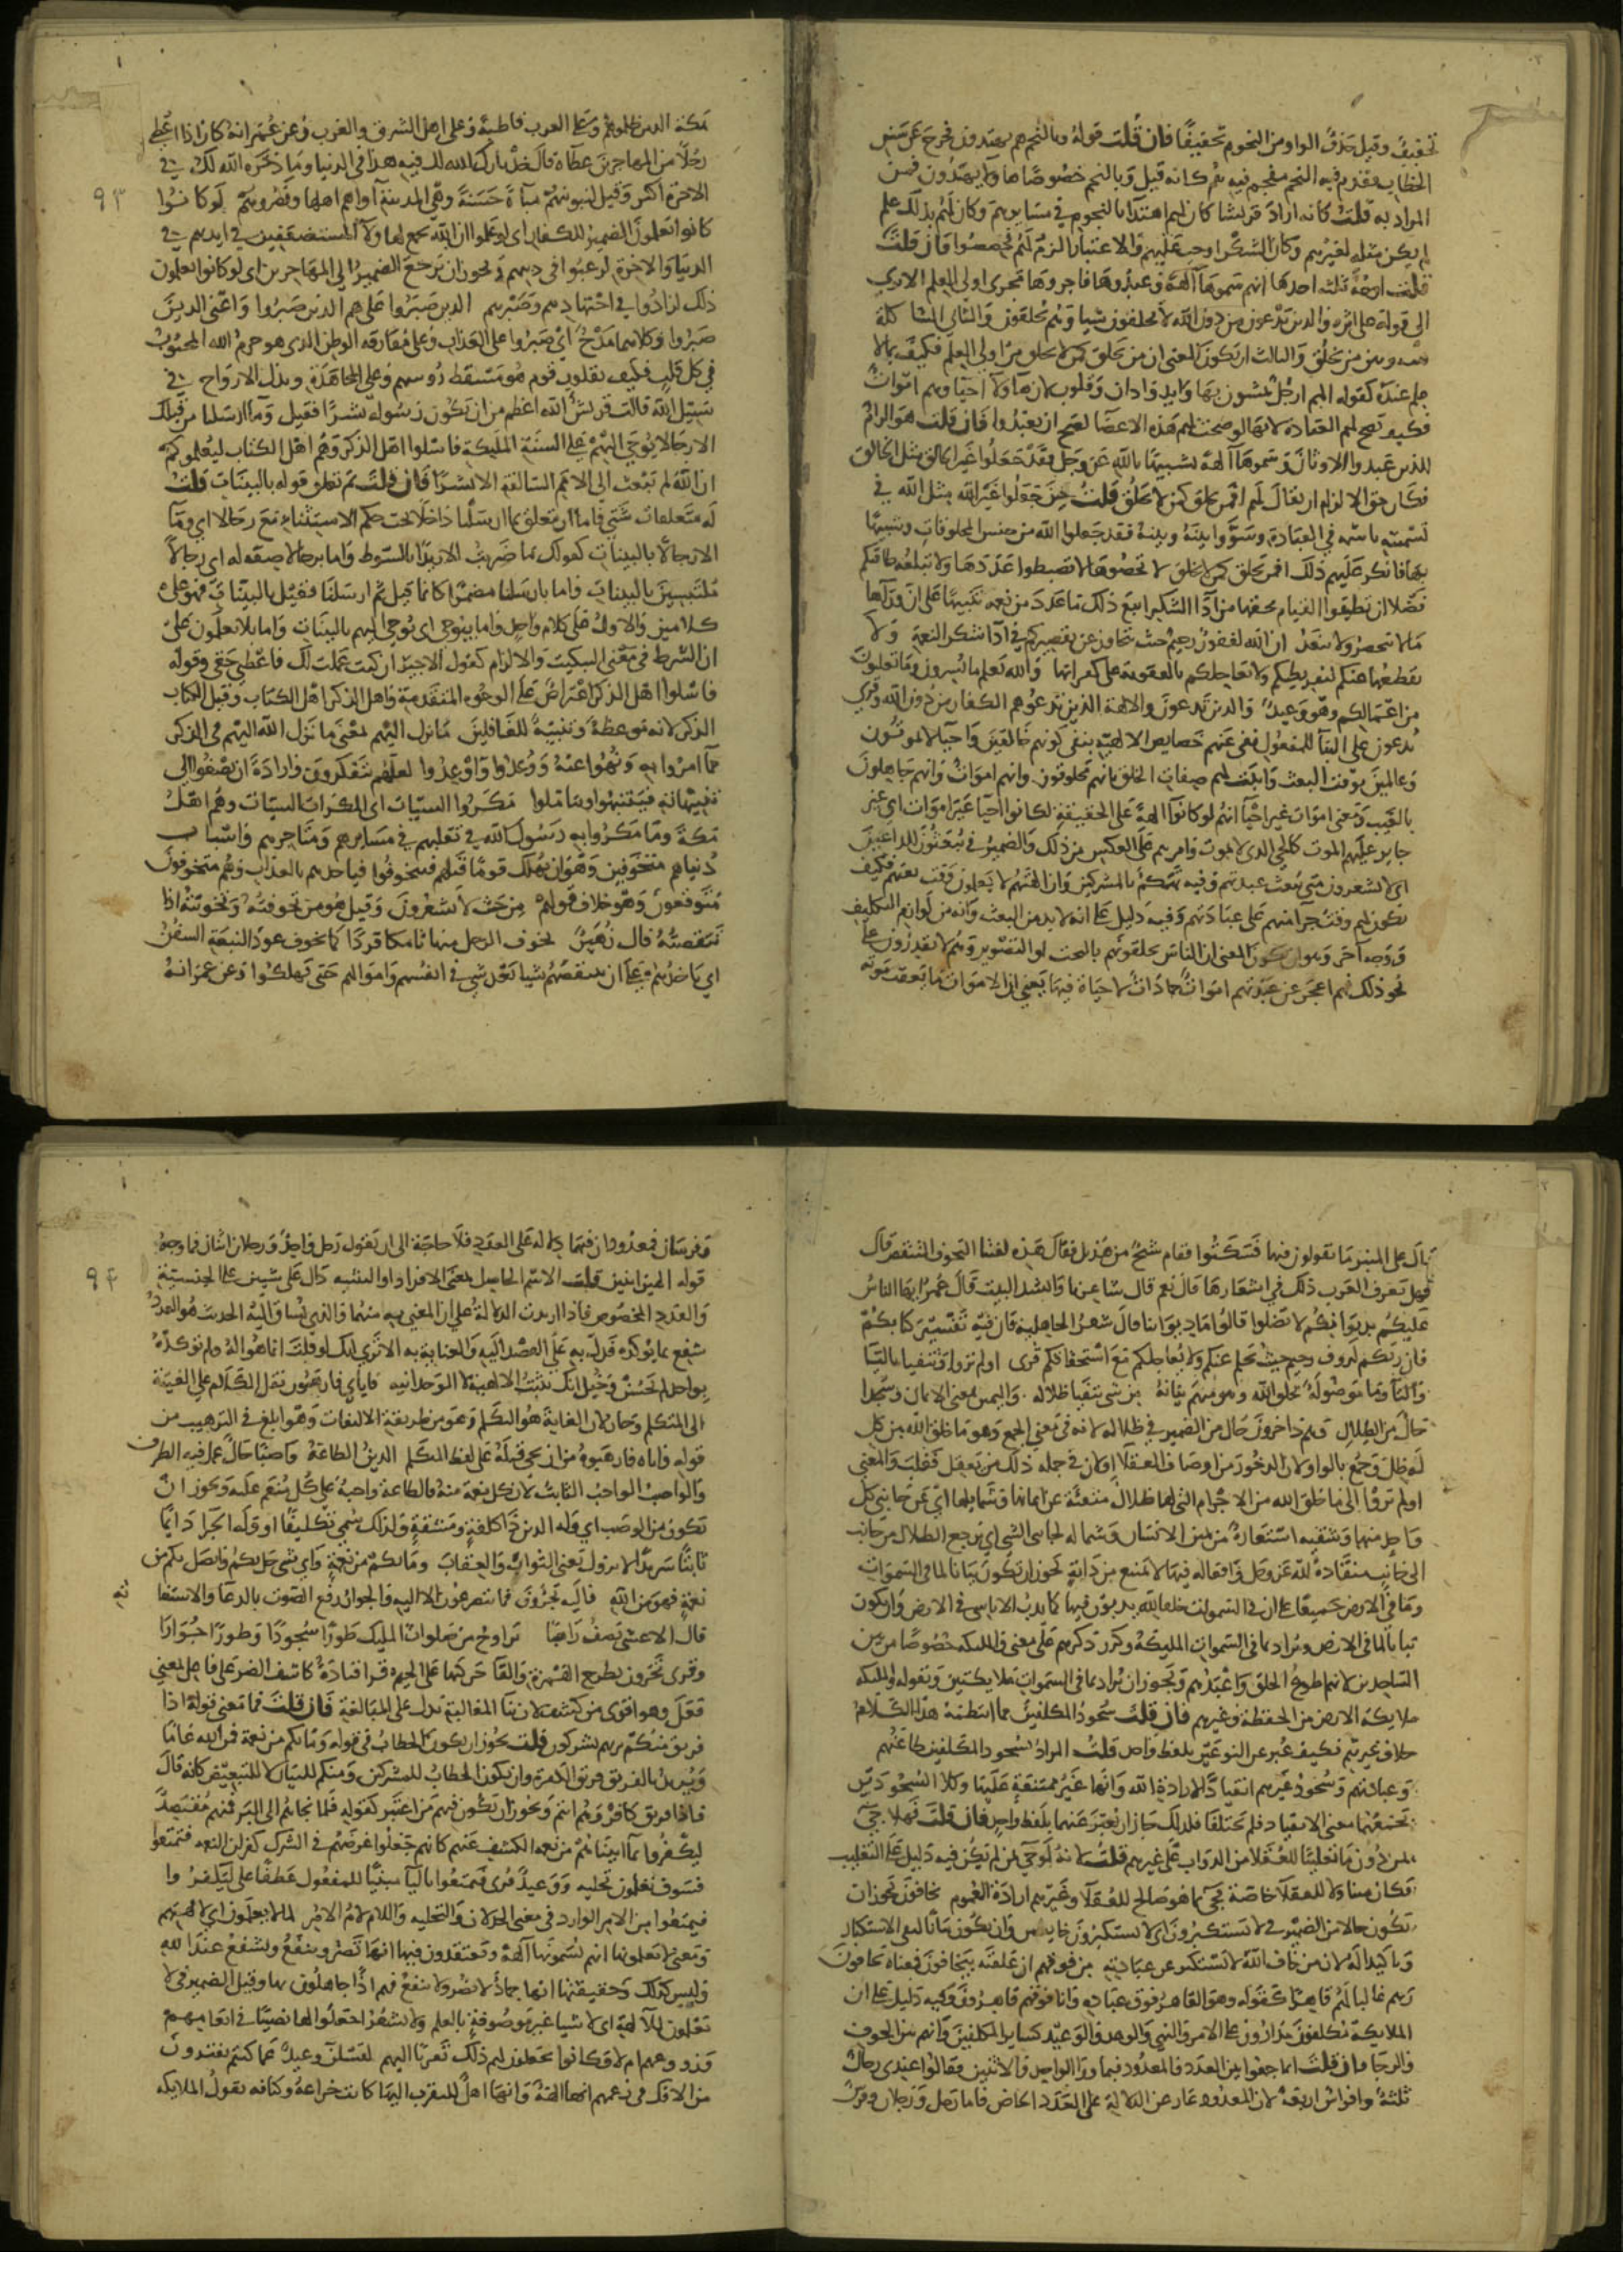 تخفيفا وقيل حذف الواو من النجوم تخفيفا فان قلت قوله وبالنجم هم يهتدون مخرج عن سنن
الخطاب مقدم فيه النجم مقحم فيه هم كانه قيل وبالنجم خصوصا هاولا يهتدون فمن
المراد به قلت كانه اراد قريشا كان لهم اهتداء بالنجوم في مسايرهم وكان لهم بذلك علم
لم يكن مثله لغيرهم وكان الشكر اوجب عليهم والاعتبار الزم لهم فخصصوا فان قلت
قلت اوجه ثلثه احدها انهم سموها آلهة وعبدوها فاجروها مجرى اولي العلم الا ترى
الى قوله على اثره والذين تدعون من دون الله لا يخلقون شيا وهم يخلقون والثاني المشاكلة
بينه وبين من يخلق والثالث ان يكون المعنى ان من يخلق كمن لا يخلق من اولي العلم فكيف بما لا
علم عنده كقوله الهم ارجل يمشون بها
فكيف تصح لهم العبادة لا انها لو صحت لهم هذه الاعضا لصح ان يعبدوا فان قلت هو الزام
للذين عبدوا الاوثان وسموها آلهة تشبيها بالله عز وجل فقد جعلوا غير الخالق مثل الخالق
فكان حق الالزام ان يقال لهم افمن لا يخلق كمن يخلق قلت حين جعلوا غير الله مثل الله في
تسميته باسمه في العبادة وسووا بينه وبينه فقد جعلوا الله من جنس المخلوقات وشبيها
بها فانكر عليهم ذلك افمن يخلق كمن لا يخلق لا تحصوها لا تضبطوا عددها ولا تبلغه طاقتكم
فضلا ان تطيقوا القيام بحقها من اداء الشكر اتبع ذلك ما عدد من نعمه تنبيها على ان وراها
ما لا ينحصر ولا ينعد ان الله لغفور رحيم حيث يتجاوز عن تقصيركم في اداء شكر النعمة ولا
يقطعها عنكم لتفريطكم ولا يعاجلكم بالعقوبة على كفرانها والله يعلم ما تسرون وما تعلنون
من اعمالكم وهو وعيد والذين تدعون والالهة الذين تدعوهم الكفار من دون الله وقرئ
يدعون على البنا للمفعول نفي عنهم خصايص الالهية بنفي كونهم خالقين واحيا لا يموتون
وعالمين بوقت البعث واثبت لهم صفات الخلق بانهم مخلوقون وانهم اموات وانهم جاهلون
بالغيب ومعنى اموات غير احيا انهم لو كانوا آلهة على الحقيقة لكانوا احيا غير اموات اي غير
جايز عليهم الموت كالحي الذي لا يموت وامرهم على العكس من ذلك والضمير في يبعثون للداعين
اي لا يشعرون متى تبعث عبدتهم وفيه تهكم بالمشركين وان الهتهم لا يعلمون وقت بعثهم فكيف
يكون لهم وقت جزا منهم على عبادتهم وفيه دليل على انه لا بد من البعث وانه من لوازم التكليف
ووجه آخر وهو ان يكون المعنى ان الناس يخلقونهم بالنحت والتصوير وهم لا يقدرون على
نحو ذلك فهم اعجز عن عبدتهم اموات جمادات لا حياة فيها يعني ان الاموات ما يعقب موته
٩٣
مكة الذين ظلموهم وعلى العرب قاطبة وعلى اهل الشرق والغرب وعن عمر انه كان اذا اعطى
رجلا من المهاجرين عطاء قال خذ بارك الله لك فيه هذا في الدنيا وما ذخره الله لك في
الاخرة اكثر وقيل لنبوئنهم مباءة حسنة وهي المدينة آواهم اهلها ونصروهم لو كانوا
كانوا يعلمون الضمير للكفار اي لو علموا ان الله يجمع لهاولاء المستضعفين في ايديهم في
الدنيا والاخرة لرغبوا في دينهم ويجوز ان يرجع الضمير الى المهاجرين اي لو كانوا يعلمون
ذلك لزادوا في اجتهادهم وصبرهم الذين صبروا على هم الذين صبروا واعني الذين
صبروا وكلاهما مدح اي صبروا على العذاب وعلى مفارقة الوطن الذي هو حرم الله المحبوب
في كل قلب فكيف بقلوب قوم هو مسقط رؤسهم وعلى المجاهدة وبذل الارواح في
سبيل الله قالت قريش الله اعظم من ان يكون رسوله بشرا فقيل وما ارسلنا من قبلك
الا رجالا يوحى اليهم على السنة الملئكة فاسئلوا اهل الذكر وهم اهل الكتاب ليعلموكم
ان الله لم يبعث الى الامم السالفة الا بشرا فان قلت بم تعلق قوله بالبينات قلت
له متعلقات شتى فاما ان يتعلق بما ارسلنا داخلا تحت حكم الاستثناء مع رجالا اي وما
الا رجالا بالبينات كقولك ما ضربت الا زيدا بالسوط واما برجالا صفة له اي رجالا
ملتبسين بالبينات واما بارسلنا مضمرا كانما قيل بم ارسلنا فقيل بالبينات فهو على
كلامين والاول على كلام واحد واما بيوحى اي يوحى اليهم بالبينات واما بلا تعلمون على
ان الشرط في معنى التبكيت والالزام كقول الاجير ان كنت عملت لك فاعطني حقي وقوله
فاسئلوا اهل الذكر اعتراض على الوجوه المتقدمة واهل الذكر اهل الكتاب وقيل الكتاب
الذكر لانه موعظة وتنبيه للغافلين ما نزل اليهم لمعنى ما نزل الله اليهم في الذكر
مما امروا به ونهوا عنه ووعدوا واوعدوا لعلهم يتفكرون وارادة ان يصغوا الى
تنبيهاته فيتنبهوا ويتاملوا مكروا السيات اي المكرات السيات وهم اهل
مكة وما مكروا به رسول الله في تقلبهم في مسايرهم ومتاجرهم واسباب
دنياهم متخوفين وهو ان يهلك قوما قبلهم فيتخوفوا فياخذهم بالعذاب وهم متخوفون
متوقعون وهو خلاف قوله من حيث لا يشعرون وقيل هو من تخوفته وتخونته اذا
تنقصته قال زهير تخوف الرحل منها تامكا قردا كما تخوف عود النبعة السفن
اي ياخذهم على ان يتنقصهم شيا بعد شي في انفسهم واموالهم حتى يهلكوا وعن عمر انه
قال على المنبر ما تقولون فيها فسكتوا فقام شيخ من هذيل فقال هذه لغتنا التخوف التنقص قال
فهل تعرف العرب ذلك في اشعارها قال نعم قال شاعرنا وانشد البيت قال عمر ايها الناس
عليكم بديوانكم لا تضلوا قالوا ما ديواننا قال شعر الجاهلية فان فيه تفسير كتابكم
فان ربكم لروف رحيم حيث يحلم عنكم ولا يعاجلكم مع استحقاقكم قرى اولم تروا وتتفيا بالتا
واليا وما موصولة بخلق الله وهو مبهم بيانه من شي يتفيا ظلاله واليمين بمعنى الايمان وسجدا
حال من الظلال وهم داخرون حال من الضمير في ظلاله لانه في معنى الجمع وهو ما خلق الله من كل
له ظل وجمع بالواو لان الدخور من اوصاف العقلا او لان في جملة ذلك من يعقل فغلب والمعنى
اولم يروا الى ما خلق الله من الاجرام التي لها ظلال متفيئة عن ايمانها وشمايلها اي عن جانبي كل
واحد منها وشقيه استعارة من يمين الانسان وشماله لجانبي الشي اي ترجع الظلال من جانب
الى جانب منقادة لله عز وجل وافعاله فيها لا تمتنع من دابة يجوز ان يكون بيانا لما في السموات
وما في الارض جميعا على ان في السموات خلقا لله يدبون فيها كما يدب الاناسي في الارض وان يكون
بيانا لما في الارض ويراد بما في السموات الملئكة وكرر ذكرهم على معنى والملئكه خصوصا من بين
الساجدين لانهم اطوع الخلق واعبدهم ويجوز ان يراد بما في السموات ملايكتهن وبقوله والملئكه
ملايكة الارض من الحفظة وغيرهم فان قلت سجود المكلفين مما انتظمه هذا الكلام
خلاف غيرهم فكيف عبر عن النوعين بلفظ واحد قلت المراد بسجود المكلفين طاعتهم
وعبادتهم وسجود غيرهم انقيادا لارادة الله وانها غير ممتنعة عليها وكلا السجودين
يجمعهما معنى الانقياد فلم يختلفا فلذلك جاز ان يعبر عنهما بلفظ واحد فان قلت فهلا جيء
بمن دون ما تغليبا للعقلا من الدواب على غيرهم قلت لانه لو جيء بمن لم يكن فيه دليل على التغليب
فكان متناولا للعقلا خاصة فجيء بما هو صالح للعقلا وغيرهم ارادة العموم يخافون يجوز ان
يكون حالا من الضمير في لا يستكبرون اي لا يستكبرون خايفين وان يكون بيانا لنفي الاستكبار
وتاكيدا له لان من خاف الله لا يستكبر عن عبادته من فوقهم ان علقته بيخافون فمعناه يخافون
ربهم غالبا لهم قاهرا كقوله وهو القاهر فوق عباده وانا فوقهم قاهرون وفيه دليل على ان
الملايكة مكلفون مدارون على الامر والنهي والوعد والوعيد كساير المكلفين وانهم بين الخوف
والرجا فان قلت انما جمعوا بين العدد والمعدود فيما ورا الواحد والاثنين فقالوا عندي رجال
ثلثة وافراس اربعة لان المعدود عار عن الدلالة على العدد الخاص فاما رجل ورجلان وفرس
٩٤
وفرسان فمعدودان فيهما دلالة على العدد فلا حاجة الى ان يقول رجل واحد ورجلان اثنان فما وجه
قوله الهين اثنين قلت الاسم الحامل لمعنى الافراد او التثنية دال على شيين على الجنسية
والعدد المخصوص فاذا اريدت الدلالة على ان المعني به منهما والذي يساق اليه الحديث هو العدد
شفع بما يوكده فدل به على القصد اليه والعناية به الا ترى انك لو قلت انما هو اله ولم توكده
بواحد لم يحسن وخيل انك تثبت الالاهية لا الوحدانيه فاياي فارهبون نقل الكلام على الغيبة
الى المتكلم وجاز لان الغايب هو المتكلم وهو من طريقة الالتفات وهو ابلغ في الترهيب من
قوله واياه فارهبوه من ان يجي ما قبله على لفظ المتكلم الدين الطاعة واصبا حال عمل فيه الظرف
والواصب الواجب الثابت لان كل نعمة منه فالطاعة واجبة على كل منعم عليه ويجوز ان
يكون من الوصب اي وله الدين ذا كلفة ومشقة ولذلك سمي تكليفا او وله الجزا دايما
ثابتا سرمدا لا يزول يعني الثواب والعقاب وما بكم من نعمة واي شي حل بكم واتصل بكم من
نعمة فهو من الله فاليه تجرون فما تتضرعون الا اليه والجوار رفع الصوت بالدعا والاستغا
ثه
قال الاعشى يصف راهبا يراوح من صلوات المليك طورا سجودا وطورا جوارا
وقرى تجرون بطرح الهمزة والقا حركتها على الجيم قرا قتادة كاشف الضر على فاعل بمعنى
فعل وهو اقوى من كشف لان بنا المغالبة يدل على المبالغة فان قلت فما معنى قوله اذا
فريق منكم بربهم يشركون قلت يجوز ان يكون الخطاب في قوله وما بكم من نعمة فمن الله عاما
ويريد بالفريق فريق الكفرة وان يكون الخطاب للمشركين ومنكم للبيان لا للتبعيض كانه قال
فاذا فريق كافر وهم انتم ويجوز ان يكون فيهم من اعتبر كقوله فلما نجاهم الى البر فمنهم مقتصد
ليكفروا بما آتيناهم من نعمة الكشف عنهم كانهم جعلوا غرضهم في الشرك كفران النعمه فتمتعوا
فسوف تعلمون تخليه ووعيد قرى فيمتعوا باليا مبنيا للمفعول عطفا على ليكفروا
فيمتعوا من الامر الوارد في معنى الخذلان والتخليه واللام لام الامر لما لا يعلمون اي لالهتهم
ومعنى لا يعلمونها انهم يسمونها آلهة ويعتقدون فيها انها تضر وتنفع وتشفع عند الله
وليس كذلك وحقيقتها انها جماد لا يضر ولا ينفع فهم اذا جاهلون بها وقيل الضمير في لا
يعلمون للآلهة اي لاشيا غير موصوفة بالعلم ولا تشعر اجعلوا لها نصيبا في انعامهم
وزروعهم ام لا وكانوا يجعلون لهم ذلك تقربا اليهم لتسئلن وعيد عما كنتم تفترون
من الافك في زعمهم انها الهة وانها اهل للتقرب اليها كانت خزاعة وكنانه تقول الملايكه